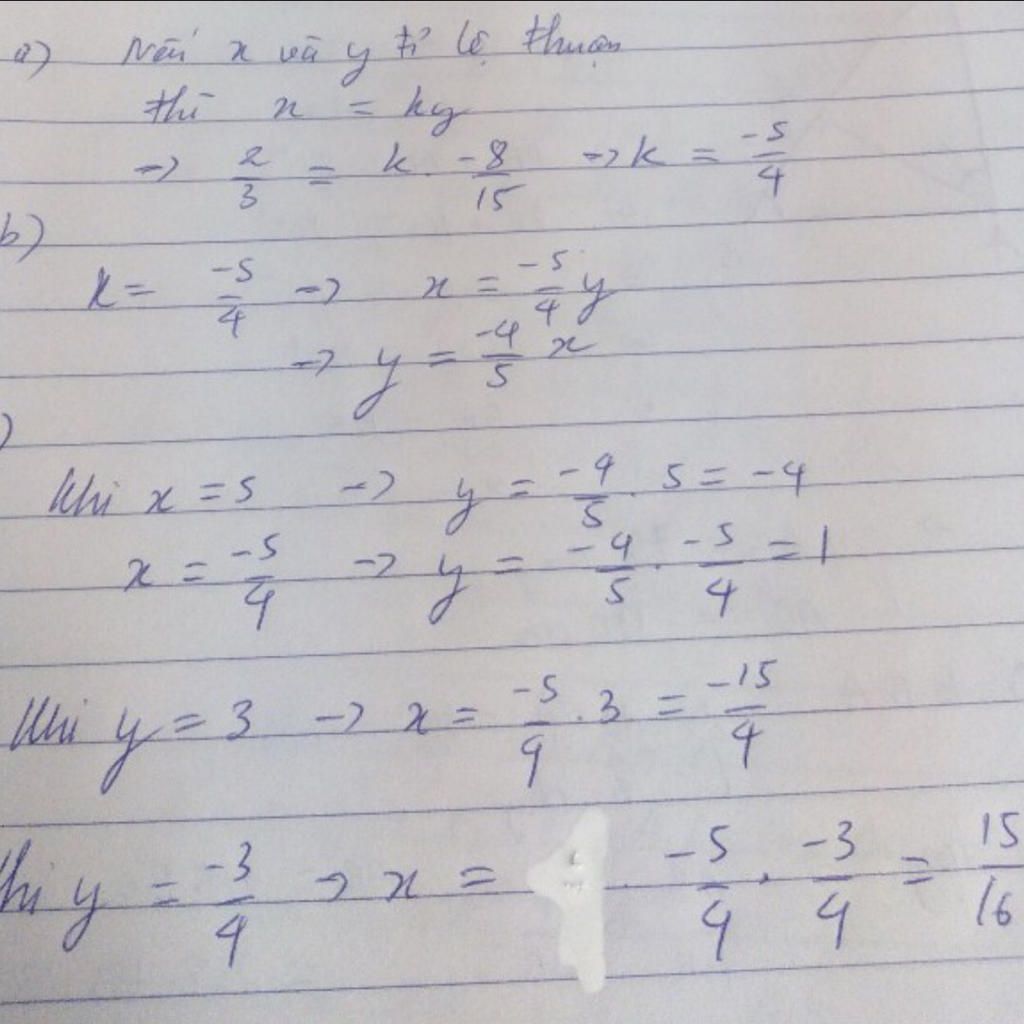 a) Nếu x và y tỉ lệ thuận
thì x = ky
→ 2/3 = k . -8/15 → k = -5/4
b)
k = -5/4 → x = -5/4 y
→ y = -4/5 x
)
Khi x = 5 → y = -4/5 . 5 = -4
x = -5/4 → y = -4/5 . -5/4 = 1
Khi y = 3 → x = -5/4 . 3 = -15/4
Khi y = -3/4 → x = . -5/4 . -3/4 = 15/16